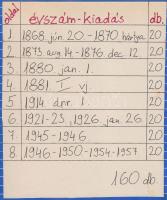 oldal évszám-kiadás db.
1 1868. jún. 20 - 1870 hártya 20
2 1873 aug. 14 - 1876. dec. 12. 20
3 1880. jan. 1. 20
4 1881 I vj. 20
5 1914 ápr. 1. 20
6 1921-23, 1926. jan. 26 20
7 1945-1946 20
8 1946-1950-1954-1957 20
160 db.